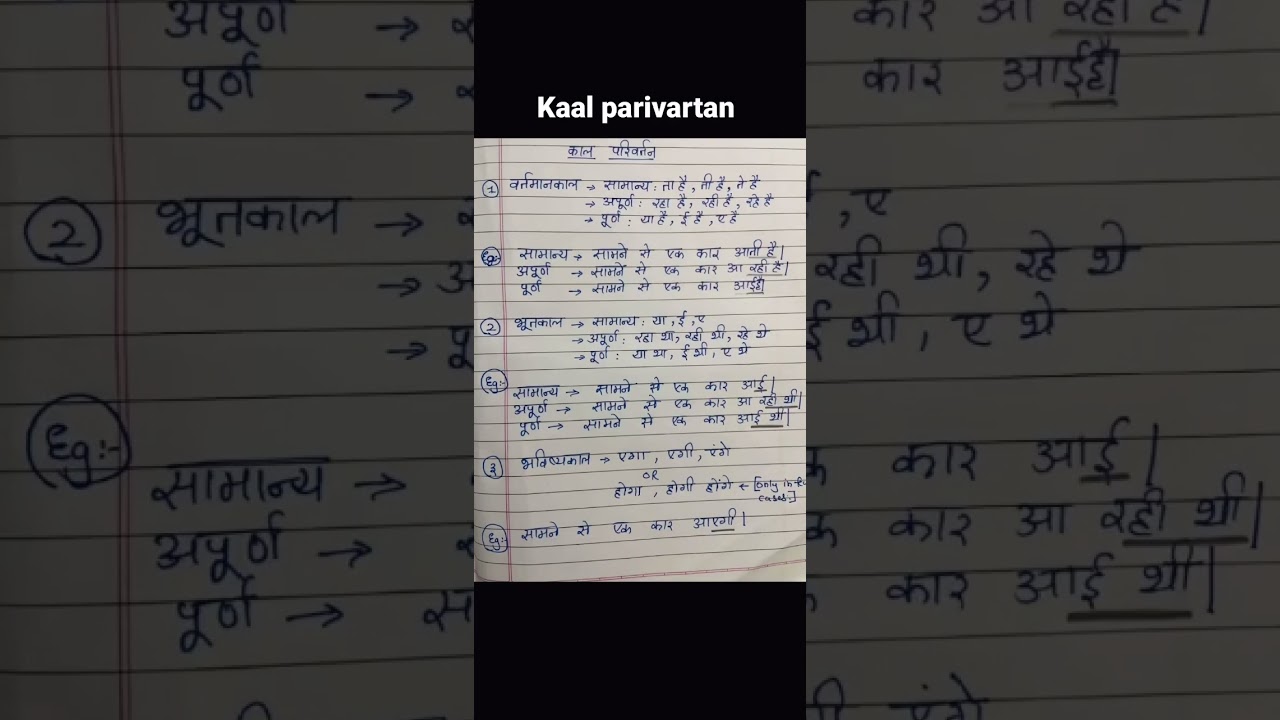 Kaal parivartan
काल परिवर्तन
① वर्तमानकाल → सामान्य : ता है, ती है, ते है
→ अपूर्ण : रहा है, रही है, रहे है
→ पूर्ण : या है, ई है, ए है
Eg:- सामान्य → सामने से एक कार आती है|
अपूर्ण → सामने से एक कार आ रही है|
पूर्ण → सामने से एक कार आई है|
② भूतकाल → सामान्य : या, ई, ए
→ अपूर्ण : रहा था, रही थी, रहे थे
→ पूर्ण : या था, ई थी, ए थे
Eg:- सामान्य → सामने से एक कार आई|
अपूर्ण → सामने से एक कार आ रही थी|
पूर्ण → सामने से एक कार आई थी|
③ भविष्यकाल → एगा, एगी, एंगे
OR
होगा, होगी होंगे ← [only in
cases]
Eg:- सामने से एक कार आएगी|